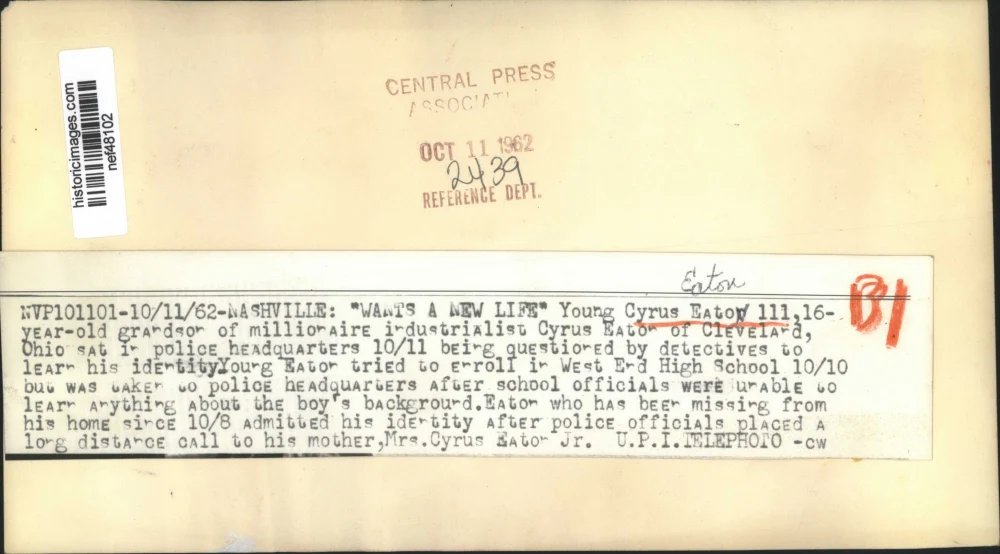 historicimages.com
nef48102
CENTRAL PRESS
ASSOCIAT
OCT 11 1962
2439
REFERENCE DEPT.
Eaton
B1
NVP101101-10/11/62-NASHVILLE: "WANTS A NEW LIFE" Young Cyrus Eaton 111,16-
year-old grandson of millionaire industrialist Cyrus Eaton of Cleveland,
Ohio sat in police headquarters 10/11 being questioned by detectives to
learn his identity.Young Eaton tried to enroll in West End High School 10/10
but was taken to police headquarters after school officials were unable to
learn anything about the boy's background.Eaton who has been missing from
his home since 10/8 admitted his identity after police officials placed a
long distance call to his mother,Mrs.Cyrus Eaton Jr. U.P.I.TELEPHOTO -cw